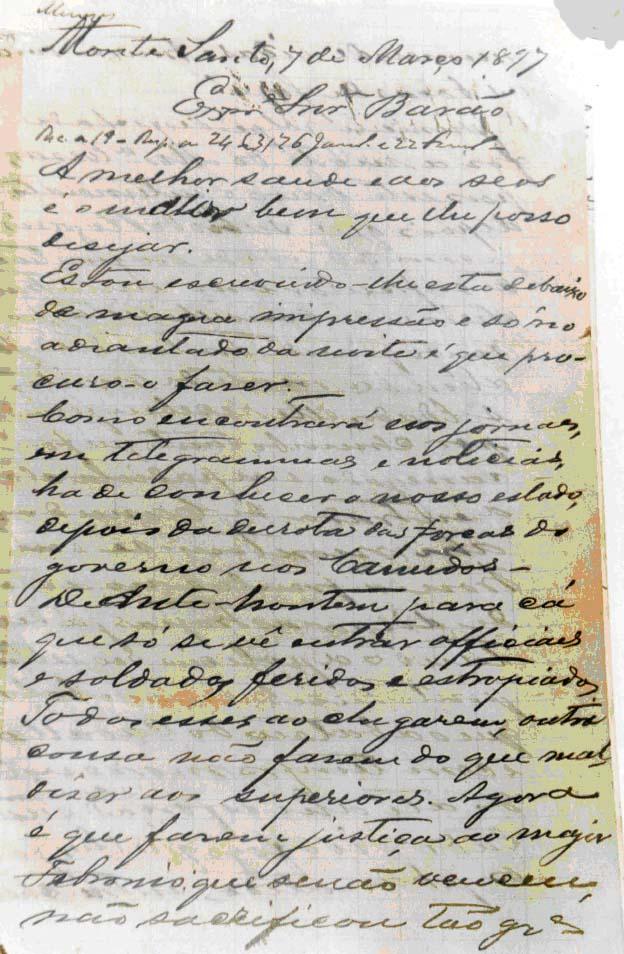 Monte Santo, 7 de Março 1897
Exmo Snr Barão
Rec a 19 - Resp. a 24 26 Janr. e 22
A melhor saude e aos seus
é o melhor bem que lhe posso
desejar.
Estou escrevendo-lhe esta debaixo
de magua impressão e só no
adiantado da noite é que pro-
curo-o fazer.
Como encontrará nos jornaes,
em telegrammas e noticias,
ha de conhecer o nosso estado,
depois da derrota das forças do
governo nos Canudos -
De Ante-hontem para cá
que só se vê entrar officiaes
e soldados feridos e estropiados.
Todos esses ao chegarem, outra
cousa não fazem do que mal
dizer aos superiores. Agora
é que fazem justiça ao major
Febronio, que se não venceu,
não sacrificou tão gr.es